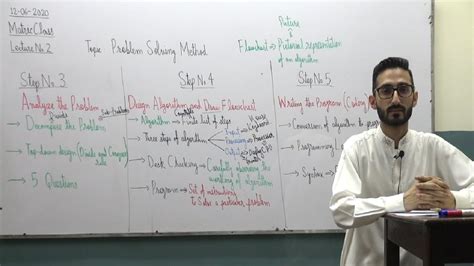 12-06-2020
Matric Class
Lecture No. 2
Topic Problem Solving Method
Picture
Flowchart → Pictorial representation
of an algorithm
Step No. 3
Analyze the Problem
→ Decompose the Problem
→ Top-down design (Divide and Conquer
Rule)
→ 5 Questions
Step No. 4
Design Algorithm and Draw Flowchart
→ Algorithm → Finite list of steps
→ Three steps of algorithm
Input
Output
→ Desk Checking → Carefully observing the
working of algorithm
→ Program → Set of instructions
to solve a particular problem
Step No. 5
Writing the Program (Coding)
→ Conversion of algorithm to
→ Programming
→ Syntax →